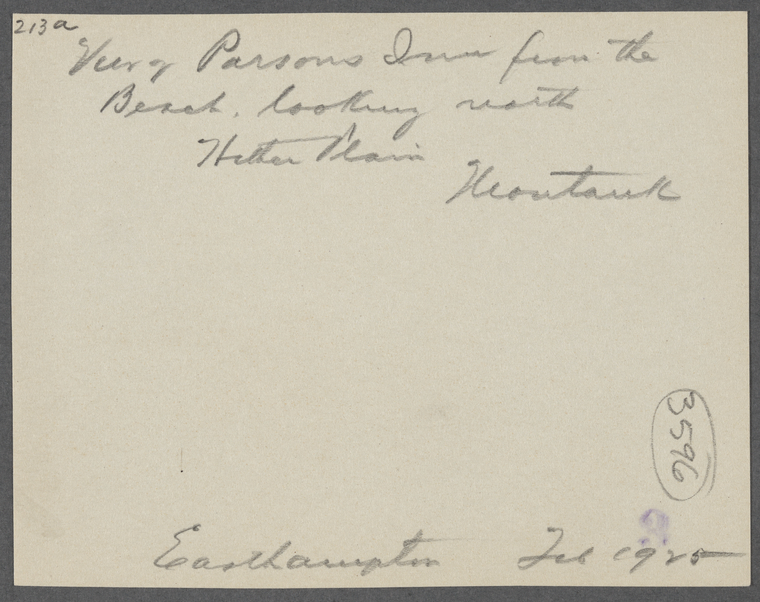 213a
View of Parsons Inn from the
Beach, looking north
Hither Plain
Montauk
3596
Easthampton Feb 1925